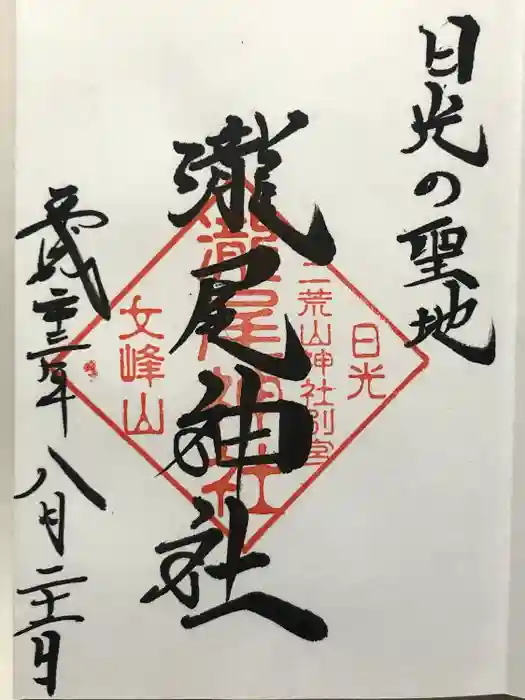 日光の聖地
瀧尾神社
平成二十三年八月二十一日
日光
二荒山神社別宮
瀧尾神社
女峰山